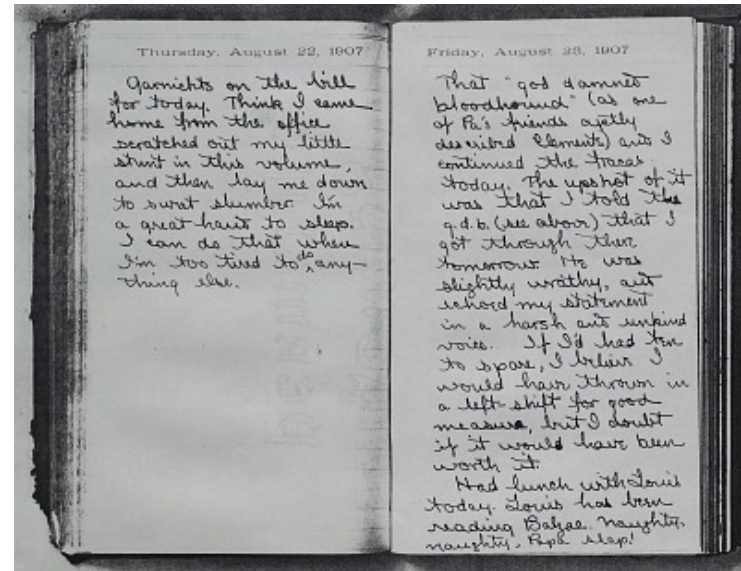 Thursday, August 22, 1907
Garnichts on the bill
for today. Think I came
home from the office
scratched out my little
stunt in this volume,
and then lay me down
to sweet slumber. I'm
a great hand to sleep.
I can do that when
I'm too tired to do any-
thing else.
Friday, August 23, 1907
That "god damned
bloodhound" (as one
of Pa's friends aptly
described Clements) and I
continued the fracas
today. The upshot of it
was that I told the
g.d.b. (see above) that I
got through there
tomorrow. He was
slightly wrathy, and
echoed my statement
in a harsh and unkind
voice. If I'd had ten
to spare, I believe I
would have thrown in
a left-shift for good
measure, but I doubt
if it would have been
worth it.
Had lunch with Louis
today. Louis has been
reading Balzac. Naughty,
naughty, Papa slap!